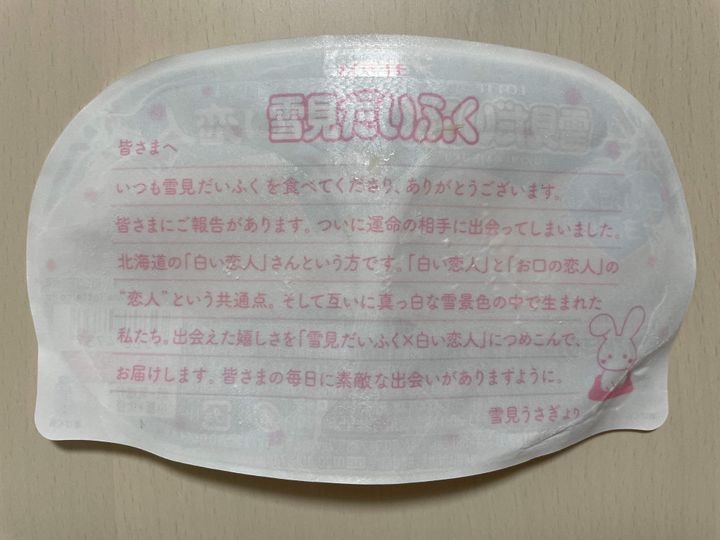 雪見だいふく
皆さまへ
いつも雪見だいふくを食べてくださり、ありがとうございます。
皆さまにご報告があります。ついに運命の相手に出会ってしまいました。
北海道の「白い恋人」さんという方です。「白い恋人」と「お口の恋人」の
“恋人”という共通点。そして互いに真っ白な雪景色の中で生まれた
私たち。出会えた嬉しさを「雪見だいふく×白い恋人」につめこんで、
お届けします。皆さまの毎日に素敵な出会いがありますように。
雪見うさぎより